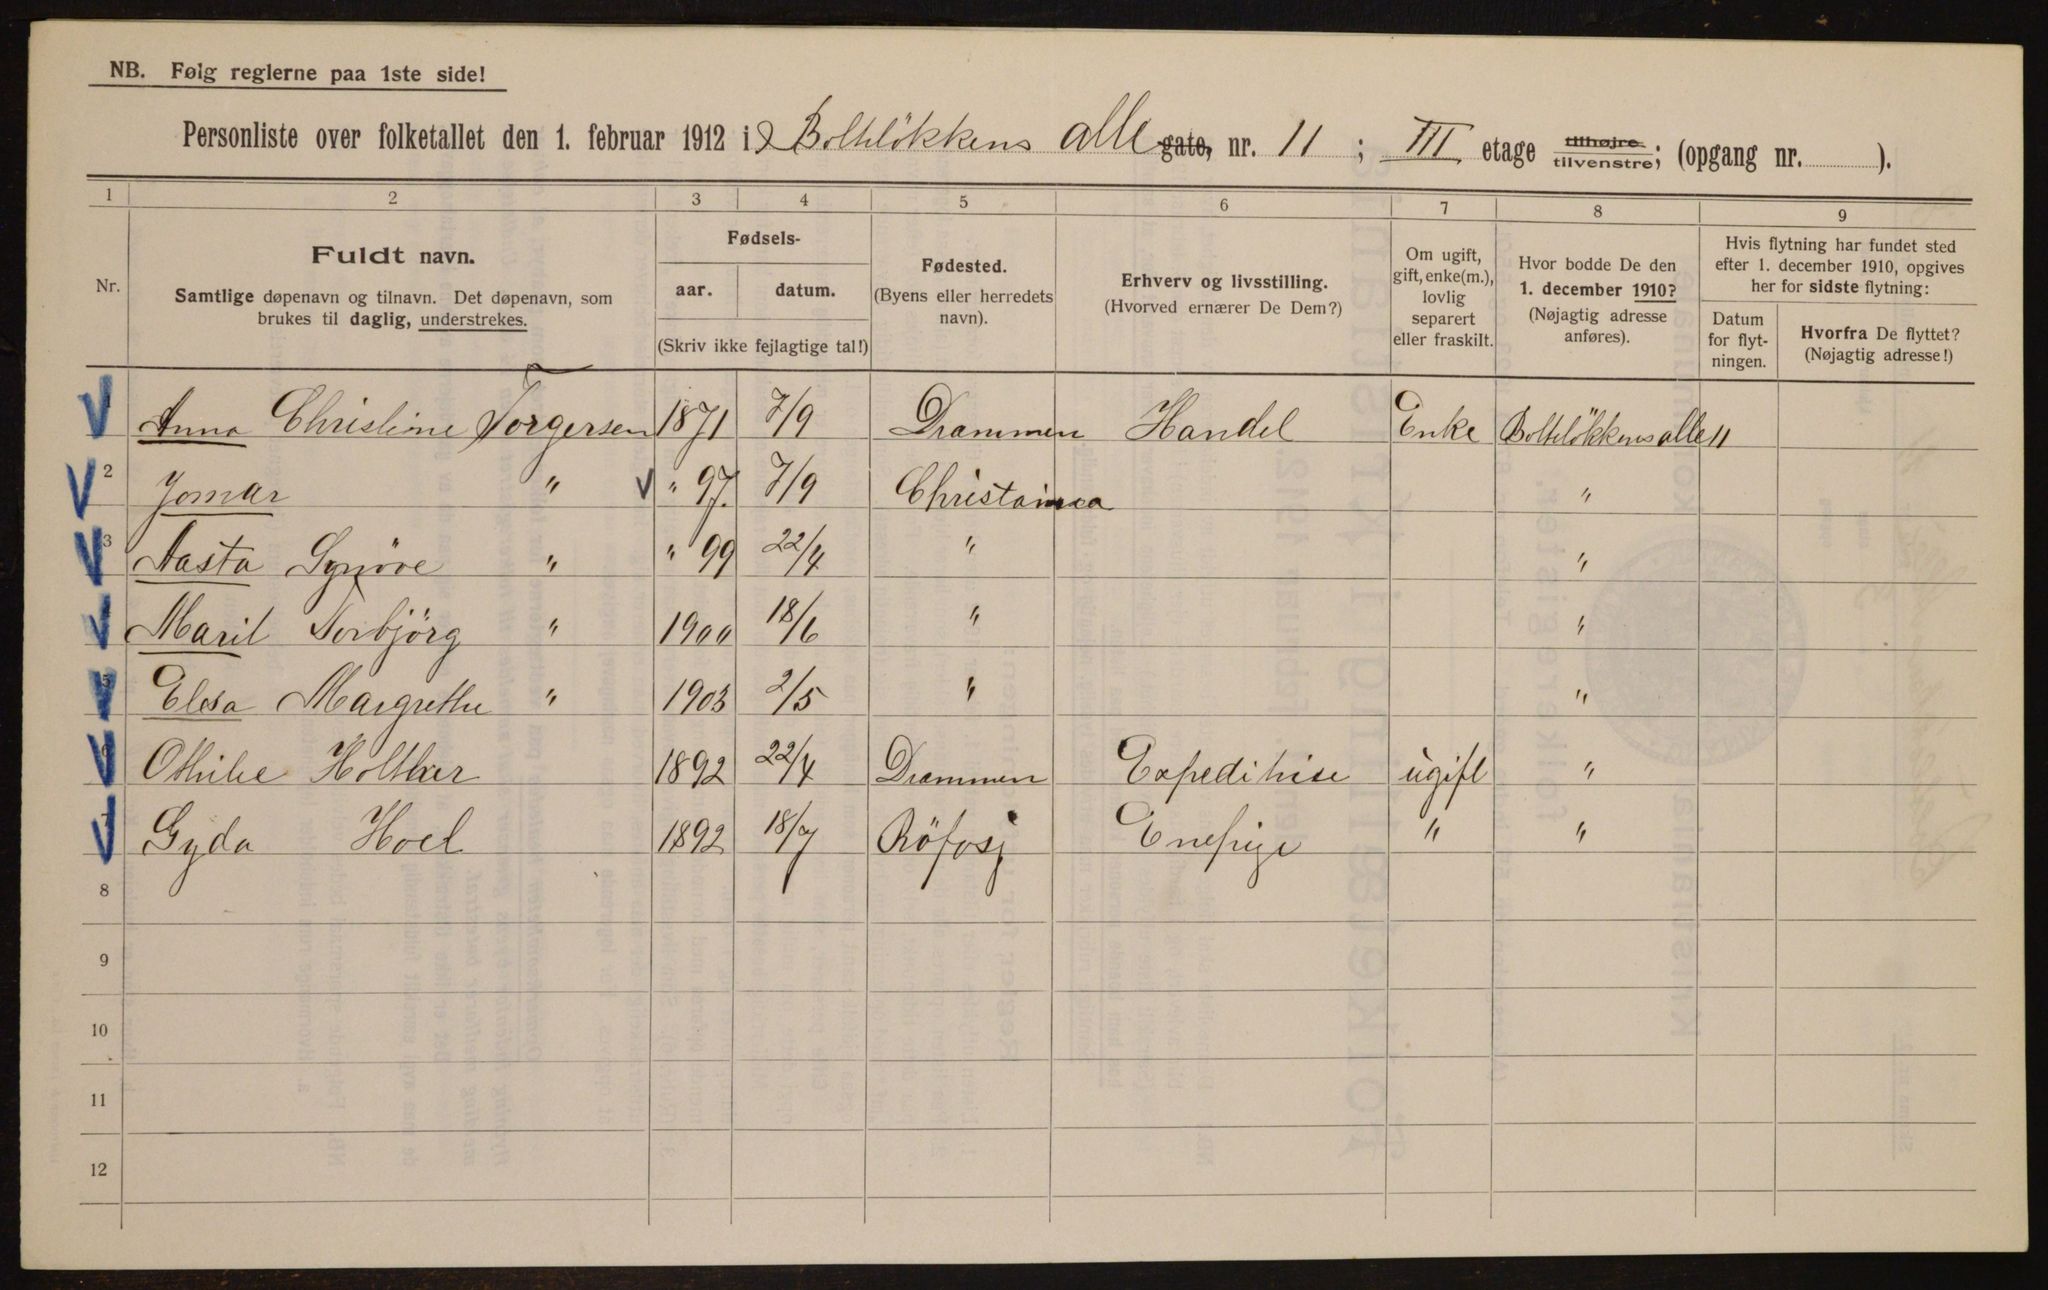 NB. Følg reglerne paa 1ste side!
Personliste over folketallet den 1. februar 1912 i Bolteløkkens alle gate, nr. 11; III etage tilhøjre tilvenstre; (opgang nr. ).
1 2 3 4 5 6 7 8 9
Nr.
Fuldt navn.
Samtlige døpenavn og tilnavn. Det døpenavn, som
brukes til daglig, understrekes.
Fødsels-
aar. datum.
(Skriv ikke fejlagtige tal!)
Fødested.
(Byens eller herredets
navn).
Erhverv og livsstilling.
(Hvorved ernærer De Dem?)
Om ugift,
gift, enke(m.),
lovlig
separert
eller fraskilt.
Hvor bodde De den
1. december 1910?
(Nøjagtig adresse
anføres).
Hvis flytning har fundet sted
efter 1. december 1910, opgives
her for sidste flytning:
Datum
for flyt-
ningen.
Hvorfra De flyttet?
(Nøjagtig adresse!)
1 Anna Christine Torgersen 1871 7/9 Drammen Handel Enke Bolteløkkens alle 11
2 Jomar " " 97. 7/9 Christania "
3 Aasta Synöve " " 99 22/4 " "
Marit Torbjörg " 1900 18/6 " "
5 Elesa Margrethe " 1903 2/5 " "
6 Othilie Holther 1892 22/4 Drammen Expeditrise ugift "
7 Gyda Hoel 1892 18/7 Enepige " "
8
9
10
11
12